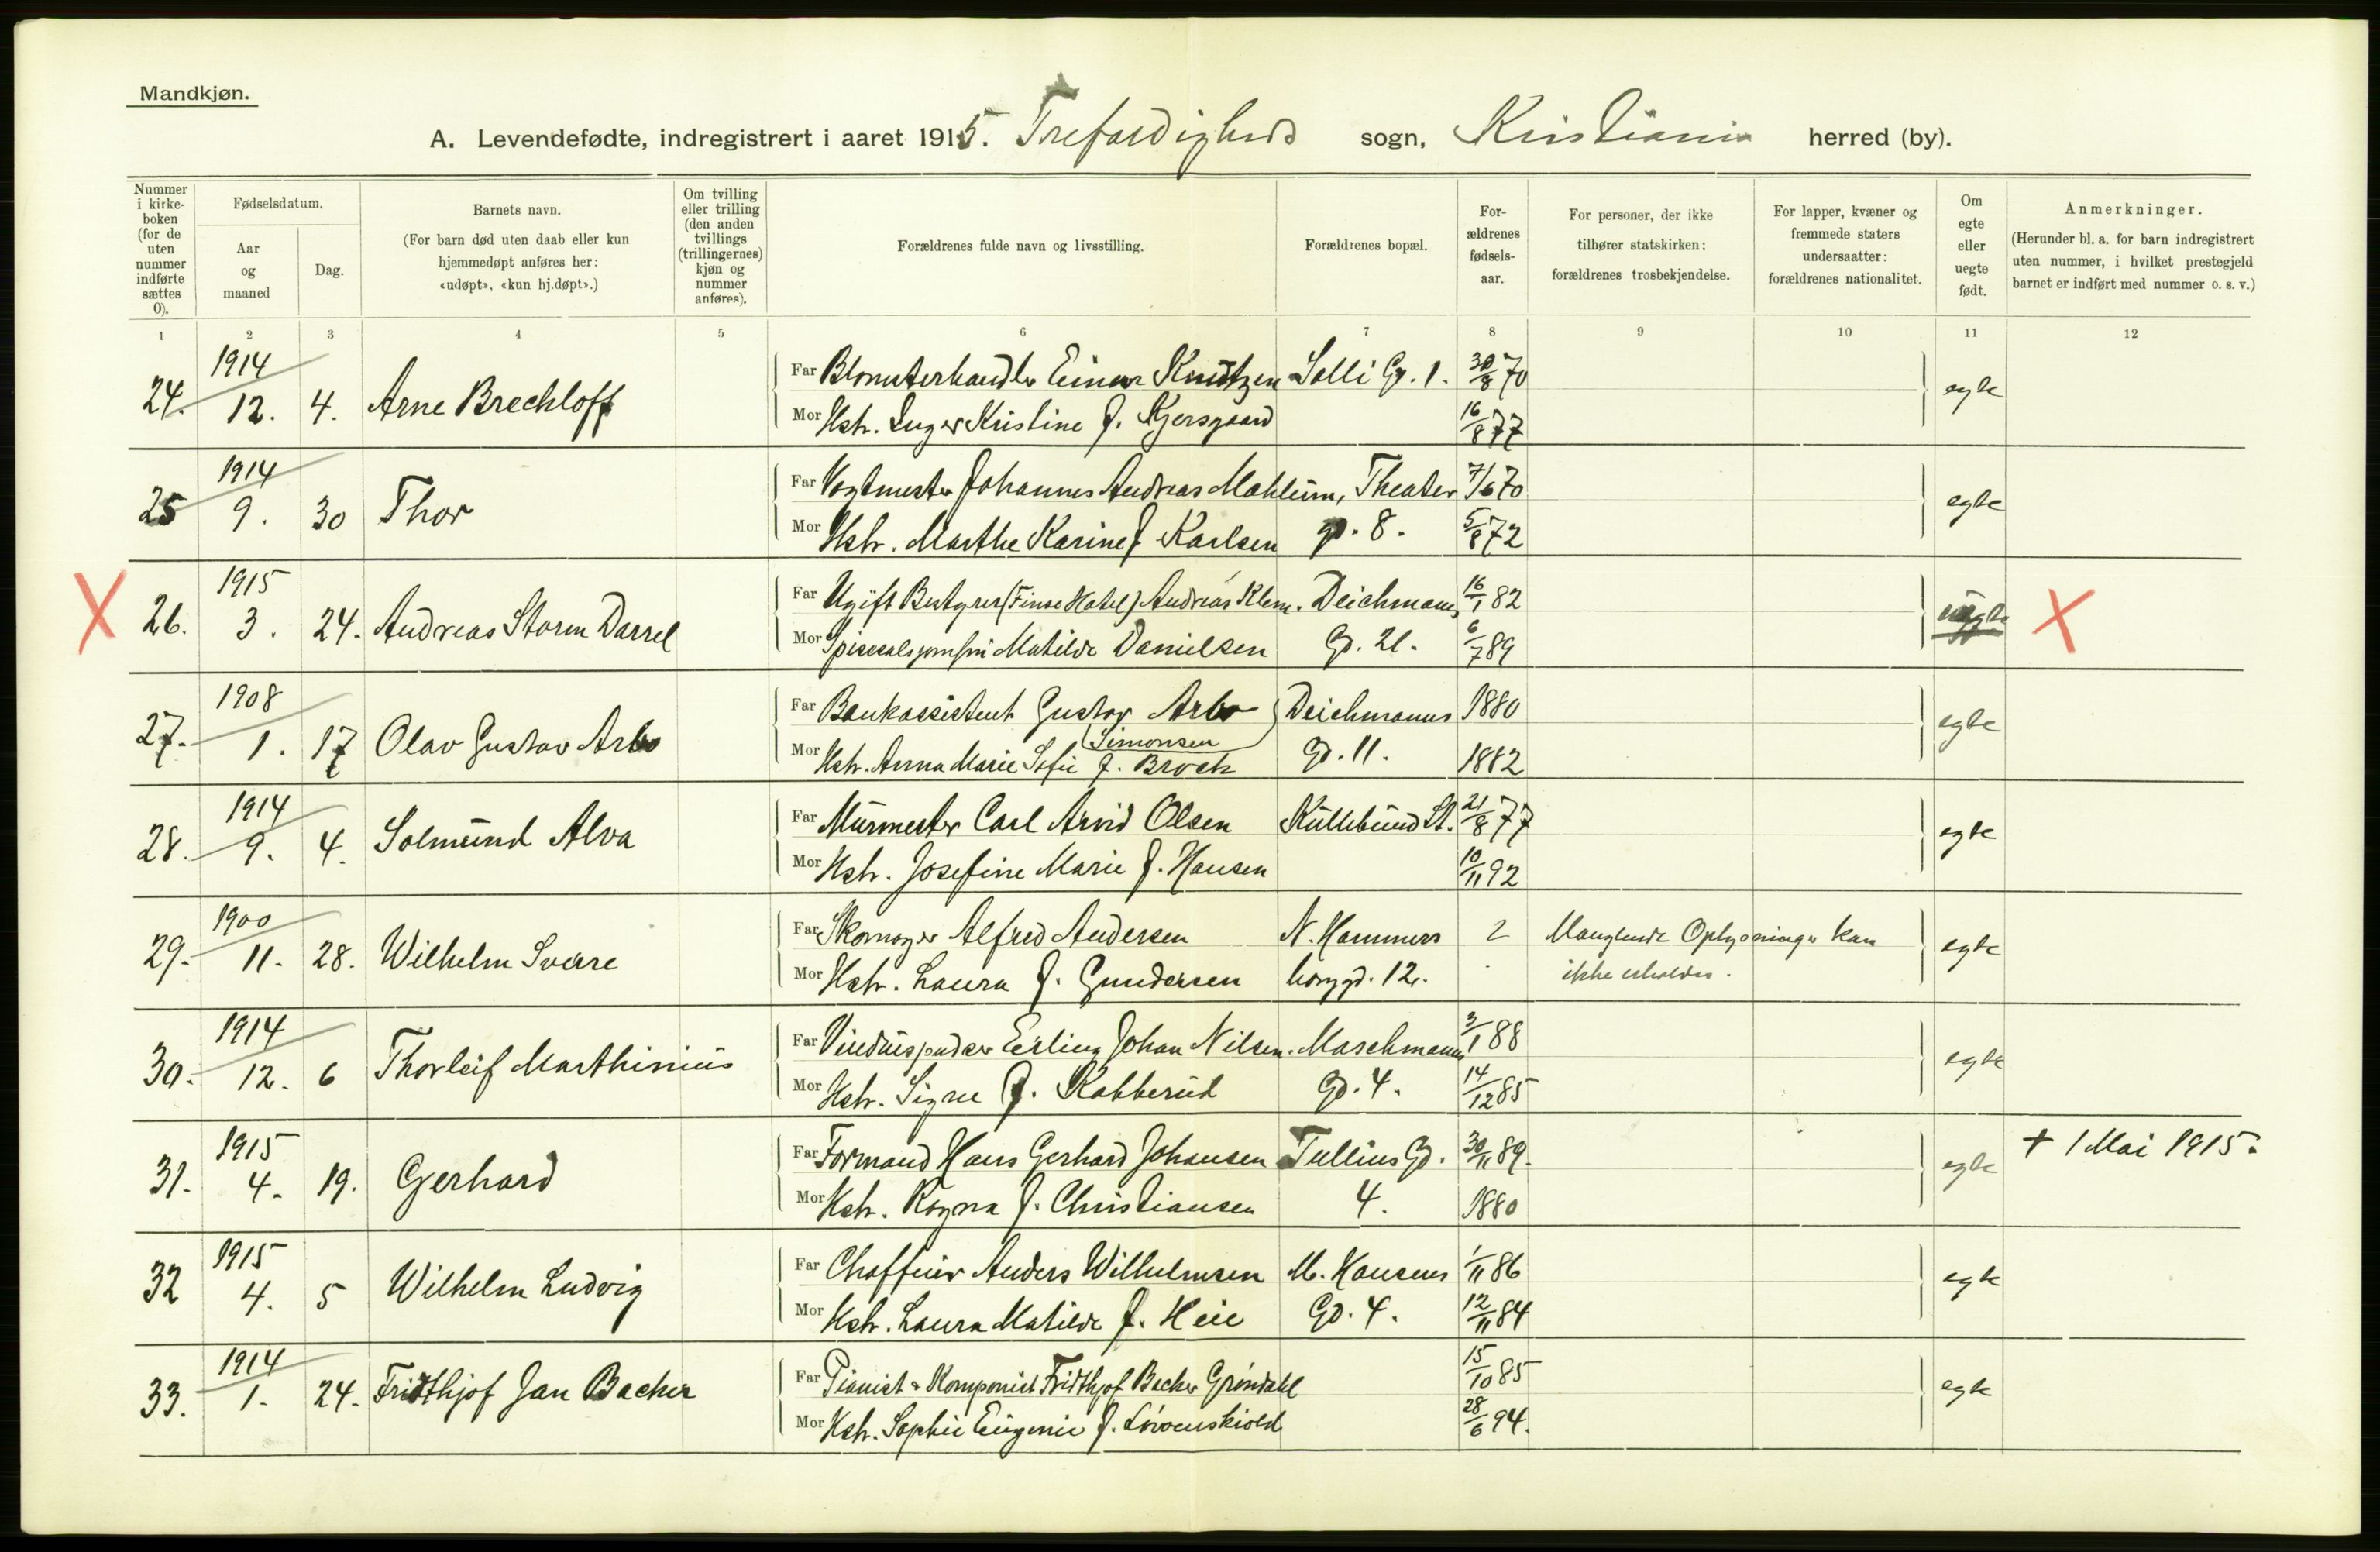 Mandkjøn.
A. Levendefødte, indregistrert i aaret 1915. Trefoldigheds sogn, Kristiania herred (by).
Nummer i kirke-boken (for de uten nummer indførte sættes 0).
Fødselsdatum.
Aar og maaned
Dag.
Barnets navn.
(For barn død uten daab eller kun hjemmedøpt anføres her: «udøpt», «kun hj.døpt».)
Om tvilling eller trilling (den anden tvillings (trillingernes) kjøn og nummer anføres).
Forældrenes fulde navn og livsstilling.
Forældrenes bopæl.
For-ældrenes fødsels-aar.
For personer, der ikke tilhører statskirken: forældrenes trosbekjendelse.
For lapper, kvæner og fremmede staters undersaatter: forældrenes nationalitet.
Om egte eller uegte født.
Anmerkninger.
(Herunder bl. a. for barn indregistrert uten nummer, i hvilket prestegjeld barnet er indført med nummer o. s. v.)
1 2 3 4 5 6 7 8 9 10 11 12
24. 1914 12. 4. Arne Brechloff Far Blomsterhandler Einar Knutzen Solli Gd. 1. 30/8 70 egte
Mor Hstr. Inger Kristine f. Kjersgaard 16/8 77
25 1914 9. 30 Thor Far Vogtmester Johannes Andreas Mahlum, Theater 7/6 70 egte
Mor Hstr. Marthe Karine f. Karlsen gd. 8. 5/8 72
X 26. 1915 3. 24. Andreas Storm Darrel Far Ugift Bestyrer (Finse Hotel) Andreas Klem. Deichmans 16/1 82 uegte X
Mor Spisesalsjomfru Matilde Danielsen Gd. 21. 6/7 89
27. 1908 1. 17 Olav Gustav Arbo Far Bankassistent Gustav Arbo Deichmanns 1880 egte
(Simonsen
Mor Hstr. Anna Marie Sofie f. Broch Gd. 11. 1882
28. 1914 9. 4. Solmund Alva Far Murmester Carl Arvid Olsen Kullebund St. 21/8 77 egte
Mor Hstr. Josefine Marie f. Hansen 10/11 92
29. 1900 11. 28. Wilhelm Sverre Far Skomager Alfred Andersen N. Hammers 2 Manglende Oplysninger kan egte
Mor Hstr. Laura f. Gundersen borggd. 12. ikke erholdes.
30. 1914 12. 6 Thorleif Marthinius Far Vinduspudser Erling Johan Nilsen. Maschmanns 3/1 88 egte
Mor Hstr. Signe f. Kabberud Gd. 4. 14/12 85
31. 1915 4. 19. Gerhard Far Formand Hans Gerhard Johansen Tullins Gd. 30/11 89. egte + 1 Mai 1915.
Mor Hstr. Ragna f. Christiansen 4. 1880
32 1915 4. 5 Wilhelm Ludvig Far Chaffeur Anders Wilhelmsen M. Hansens 1/11 86 egte
Mor Hstr. Laura Matilde f. Heie Gd. 4. 12/11 84
33. 1914 1. 24. Fridthjof Jan Backer Far Pianist & Komponist Fridthjof Backer Grøndahl 15/10 85 egte
Mor Hstr. Sophie Eugenie f. Løvenskiold 28/6 94.